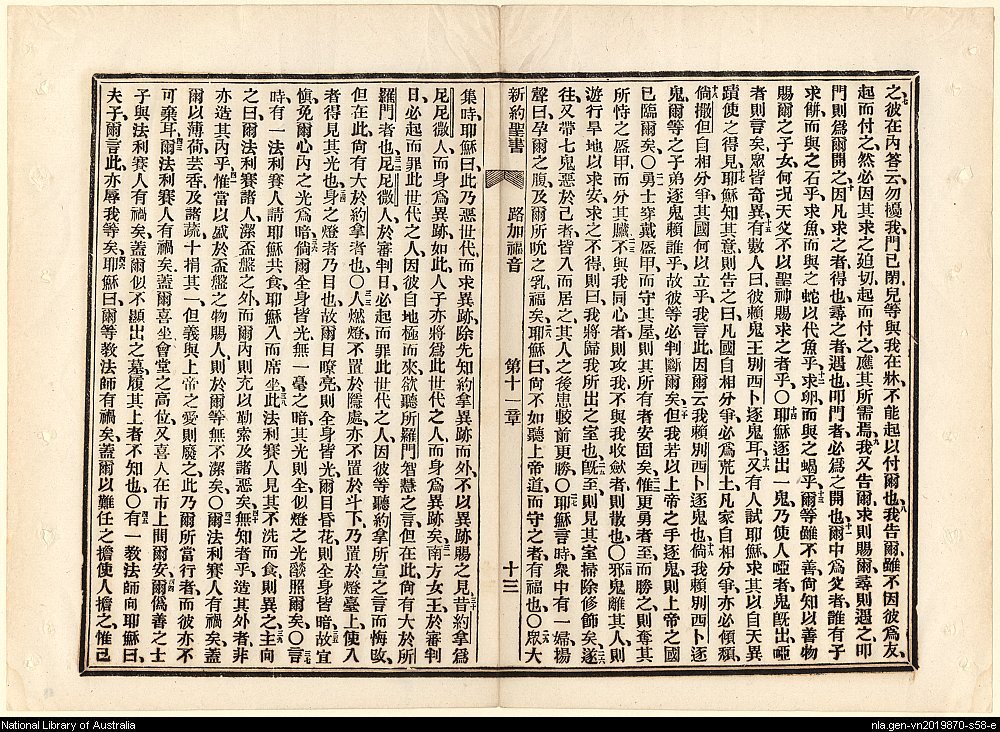 之、七彼在內答云、勿擾我、門已閉、兒等與我在牀、不能起以付爾也、八我告爾、雖不因彼爲友、
起而付之、然必因其求之廹切、起而付之、應其所需焉、九我又告爾、求則賜爾、尋則遇之、叩
門則爲爾開之、十因凡求之者得也、尋之者遇也、叩門者、必爲之開也、十一爾中爲父者、誰有子
求餅、而與之石乎、求魚而與之蛇以代魚乎、十二求卵、而與之蝎乎、十三爾等雖不善、尚知以善物
賜爾之子女、何况天父不以聖神賜求之者乎、〇十四耶穌逐出一鬼、乃使人啞者、鬼旣出、啞
者則言矣、眾皆奇異、十五有數人曰、彼賴鬼王別西卜逐鬼耳、十六又有人試耶穌、求其以自天異
蹟使之得見、十七耶穌知其意、則告之曰、凡國自相分爭、必爲荒土、凡家自相分爭、亦必傾頹、
十八倘撒但自相分爭、其國何以立乎、我言此、因爾云我賴別西卜逐鬼也、十九倘我賴別西卜逐
鬼、爾等之子弟逐鬼賴誰乎、故彼等必判斷爾矣、二十但我若以上帝之手逐鬼、則上帝之國
已臨爾矣、〇二一勇士穿戴盔甲而守其屋、則其所有者安固矣、二二惟更勇者至而勝之、則奪其
所恃之盔甲、而分其贓、二三不與我同心者、則攻我、不與我收斂者、則散也、〇二四邪鬼離其人、則
遊行旱地以求安、求之不得、則曰、我將歸我所出之室也、二五旣至、則見其室掃除修飾矣、二六遂
往又帶七鬼惡於己者、皆入而居之、其人之後患較前更勝、〇二七耶穌言時、衆中有一婦揚
聲曰、孕爾之腹、及爾所吮之乳福矣、二八耶穌曰、尚不如聽上帝道、而守之者有福也、〇二九眾大
新約聖書 路加福音 第十一章 十三
集時、耶穌曰、此乃惡世代、而求異跡、除先知約拿異跡而外、不以異跡賜之見、三十昔約拿爲
尼尼微人而身爲異跡、如此人子亦將爲此世代之人、而身爲異跡矣、三一南方女王、於審判
日必起、而罪此世代之人、因彼自地極而來、欲聽所羅門智慧之言、但在此、尙有大於所
羅門者也、三二尼尼微人於審判日必起、而罪此世代之人、因彼等聽約拿所宣之言而悔改、
但在此、尙有大於約拿者也、〇三三人燃燈、不置於隱處、亦不置於斗下、乃置於燈臺上、使入
者得見其光也、三四身之燈者、乃目也、故爾目瞭亮、則全身皆光、爾目昏花、則全身皆暗、三五故宜
愼、免爾心內之光爲暗、三六倘爾全身皆光、無一毫之暗、其光則全、似燈之光燄照爾矣、〇三七言
時、有一法利賽人請耶穌共食、耶穌入而席坐、三八此法利賽人見其不洗而食、則異之、三九主向
之曰、爾法利賽諸人、潔盃盤之外、而爾內則充以勒索及諸惡矣、四十無知者乎、造其外者、非
亦造其內乎、四一惟當以盛於盃盤之物賜人、則於爾等無不潔矣、〇四二爾法利賽人有禍矣、蓋
爾以薄荷芸香及諸蔬、十捐其一、但義與上帝之愛則廢之、此乃爾所當行者、而彼亦不
可棄耳、四三爾法利賽人有禍矣、蓋爾喜坐會堂之高位、又喜人在市上問爾安、四四爾僞善之士
子與法利賽人有禍矣、蓋爾似不顯出之墓、履其上者不知也、〇四五有一教法師向耶穌曰、
夫子、爾言此、亦辱我等矣、四六耶穌曰、爾等教法師有禍矣、蓋爾以難任之擔使人擔之、惟己
National Library of Australia
nla.gen-vn2019870-s58-e